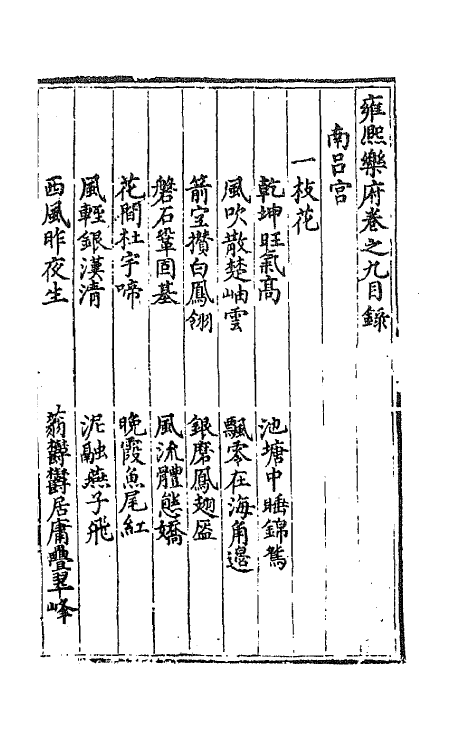 雍熙樂府卷之九目錄
南呂宮
一枝花
乾坤旺氣髙　池塘中睡錦鴛
風吹散楚岫雲　飄零在海角邉
箭空攢白鳳翎　銀磨鳳翅盔
磐石鞏固基　風流體態嬌
花間杜宇啼　晚霞魚尾紅
風輕銀漢清　泥融燕子飛
西風昨夜生　蓊欝欝居庸疊翠峰